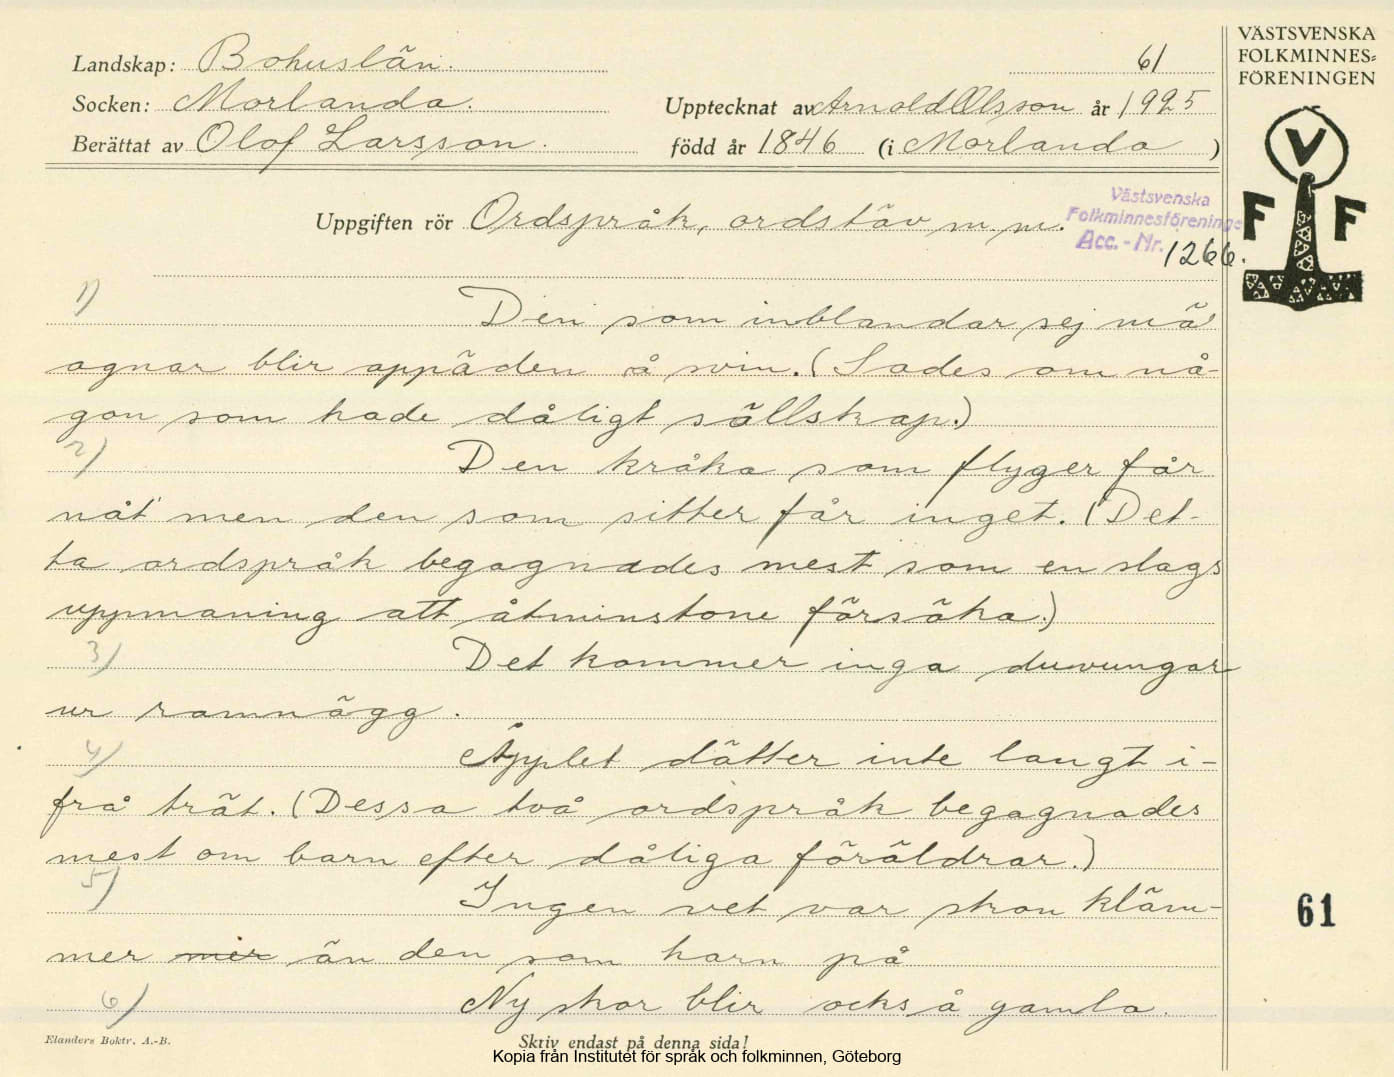 Landskap: Bohuslän.
61
VÄSTSVENSKA
FOLKMINNES=
FÖRENINGEN
Socken: Morlanda.
Upptecknat av Arnold Olsson år 1925
Berättat av Olof Larsson.
född år 1846 (i Morlanda )
V
F F
Uppgiften rör Ordspråk, ordstäv m. m.
Västsvenska
Folkminnesföreninge
Acc. - Nr. 1266.
1) Den som inblandar sej mä'
agnar blir oppäden å svin. (Sades om nå-
gon som hade dåligt sällskap.)
2) Den kråka som flyger får
nåt' men den som sitter får inget. (Det-
ta ordspråk begagnades mest som en slags
uppmaning att åtminstone försöka.)
3) Det kommer inga duvungar
ur ramnägg.
4) Äpplet dätter inte langt i-
frå trät. (Dessa två ordspråk begagnades
mest om barn efter dåliga föräldrar.)
5) Ingen vet var skon kläm-
mer mer än den som harn på
6) Ny skor blir också gamla.
61
Elanders Boktr. A.-B.
Skriv endast på denna sida!
Kopia från Institutet för språk och folkminnen, Göteborg